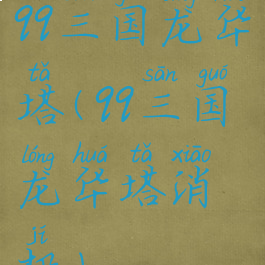 99三国龙华
tǎ sān guó
塔(99三国
lóng huá tǎ xiāo
龙华塔消
jī